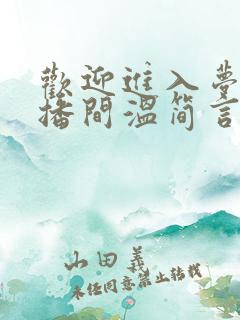 歡迎進入夢
播間溫简言
山田義
未经同意禁止转载